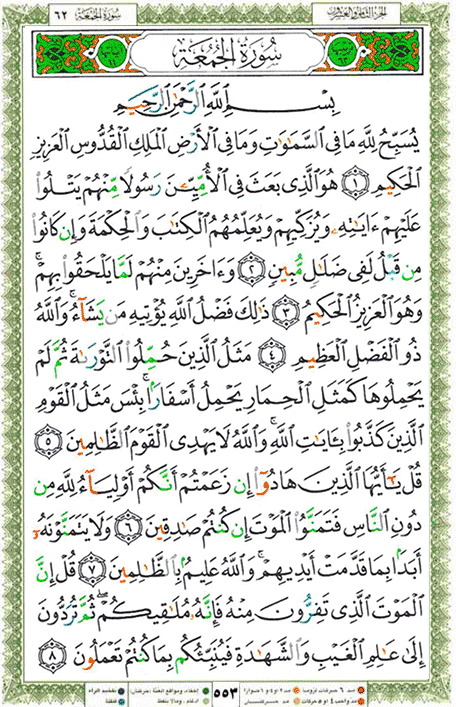 الجزء الثامن والعشرون سورة الجمعة ٦٢
سُورَةُ الجُمُعَةِ
بِسْمِ ٱللَّهِ ٱلرَّحْمَٰنِ ٱلرَّحِيمِ
يُسَبِّحُ لِلَّهِ مَا فِى ٱلسَّمَٰوَٰتِ وَمَا فِى ٱلْأَرْضِ ٱلْمَلِكِ ٱلْقُدُّوسِ ٱلْعَزِيزِ
ٱلْحَكِيمِ ١ هُوَ ٱلَّذِى بَعَثَ فِى ٱلْأُمِّيِّـۧنَ رَسُولًا مِّنْهُمْ يَتْلُوا۟
عَلَيْهِمْ ءَايَٰتِهِۦ وَيُزَكِّيهِمْ وَيُعَلِّمُهُمُ ٱلْكِتَٰبَ وَٱلْحِكْمَةَ وَإِن كَانُوا۟
مِن قَبْلُ لَفِى ضَلَٰلٍ مُّبِينٍ ٢ وَءَاخَرِينَ مِنْهُمْ لَمَّا يَلْحَقُوا۟ بِهِمْ ۚ
وَهُوَ ٱلْعَزِيزُ ٱلْحَكِيمُ ٣ ذَٰلِكَ فَضْلُ ٱللَّهِ يُؤْتِيهِ مَن يَشَآءُ ۚ وَٱللَّهُ
ذُو ٱلْفَضْلِ ٱلْعَظِيمِ ٤ مَثَلُ ٱلَّذِينَ حُمِّلُوا۟ ٱلتَّوْرَىٰةَ ثُمَّ لَمْ
يَحْمِلُوهَا كَمَثَلِ ٱلْحِمَارِ يَحْمِلُ أَسْفَارًۢا ۚ بِئْسَ مَثَلُ ٱلْقَوْمِ
ٱلَّذِينَ كَذَّبُوا۟ بِـَٔايَٰتِ ٱللَّهِ ۚ وَٱللَّهُ لَا يَهْدِى ٱلْقَوْمَ ٱلظَّٰلِمِينَ ٥
قُلْ يَٰٓأَيُّهَا ٱلَّذِينَ هَادُوٓا۟ إِن زَعَمْتُمْ أَنَّكُمْ أَوْلِيَآءُ لِلَّهِ مِن
دُونِ ٱلنَّاسِ فَتَمَنَّوُا۟ ٱلْمَوْتَ إِن كُنتُمْ صَٰدِقِينَ ٦ وَلَا يَتَمَنَّوْنَهُۥٓ
أَبَدًۢا بِمَا قَدَّمَتْ أَيْدِيهِمْ ۚ وَٱللَّهُ عَلِيمٌۢ بِٱلظَّٰلِمِينَ ٧ قُلْ إِنَّ
ٱلْمَوْتَ ٱلَّذِى تَفِرُّونَ مِنْهُ فَإِنَّهُۥ مُلَٰقِيكُمْ ۖ ثُمَّ تُرَدُّونَ
إِلَىٰ عَٰلِمِ ٱلْغَيْبِ وَٱلشَّهَٰدَةِ فَيُنَبِّئُكُم بِمَا كُنتُمْ تَعْمَلُونَ ٨
٥٥٣